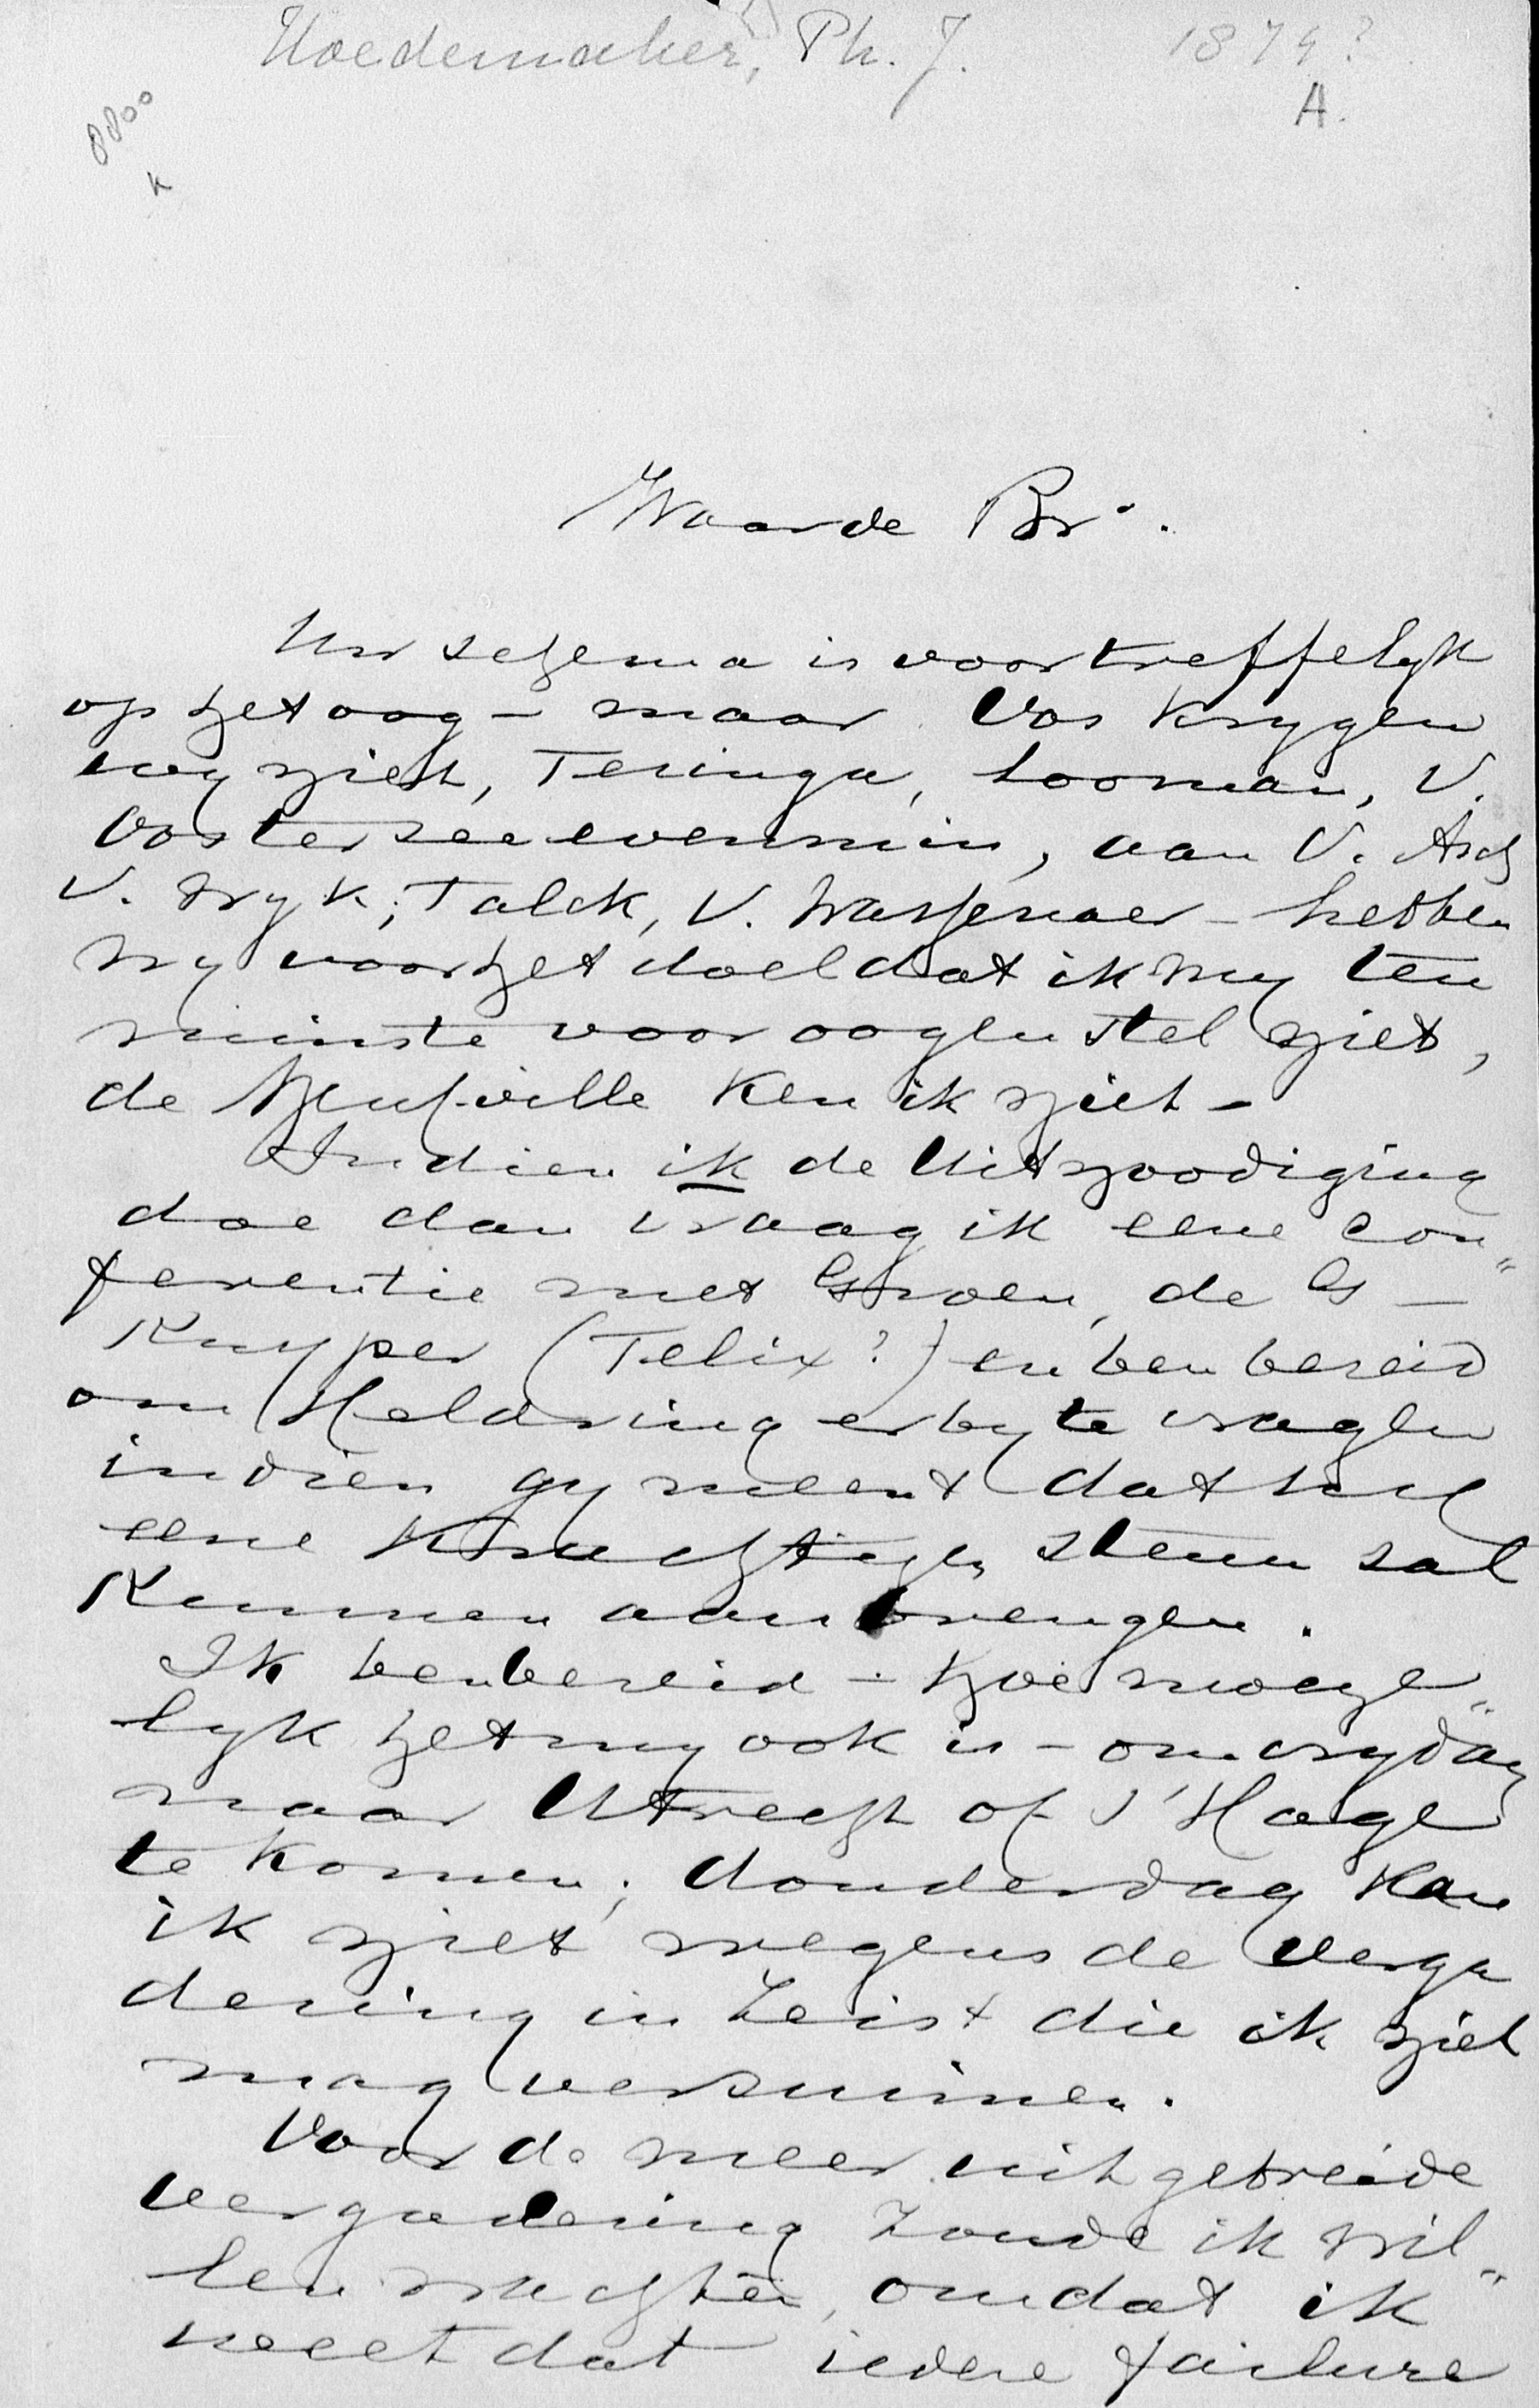 Hoedemaker, Ph. J. 1874?
A.
8800
K
Waarde Br.
Uw schema is voortreffelyk
op het oog – maar Vos krygen
wy niet, Teringa, Looman, V.
Oosterzee evenmin, aan V. Asch
V. Wyk, Talck, V. Wassenaer – hebben
wy voor het doel dat ik my ten
minste voor oogen stel niets,
de Neufville ken ik niet –
Indien ik de Uitnoodiging
doe dan vraag ik eene con"
ferentie met Groen, de G –
Kuyper (Felix?) en ben bereid
om Heldring erby te vragen
indien gy meent dat hy
eene krachtigen steun zal
kunnen aanbrengen.
Ik ben bereid – hoe moeye"
lyk het my ook is – om vrydag
naar Utrecht of s'Hage
te komen; donderdag kan
ik niet wegens de verga
dering in Zeist die ik niet
mag verzuimen.
Voor de meer uitgebreide
vergadering zoude ik wil"
len wachten, omdat ik
weet dat iedere failure